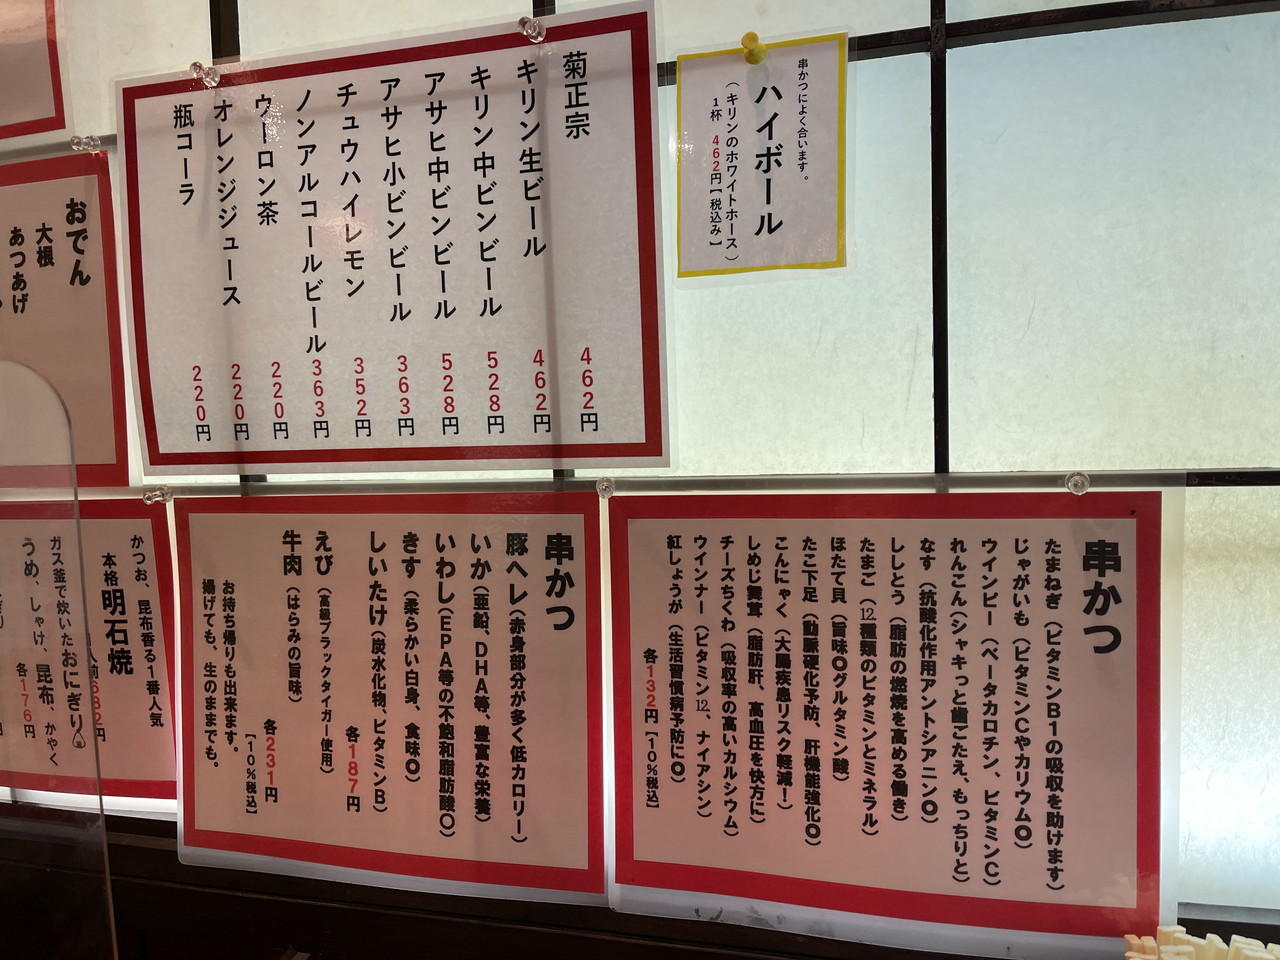 串かつによく合います。
ハイボール
（キリンのホワイトホース）
1杯 462円【税込み】
菊正宗 462円
キリン生ビール 462円
キリン中ビンビール 528円
アサヒ中ビンビール 528円
アサヒ小ビンビール 363円
チュウハイレモン 352円
ノンアルコールビール 363円
ウーロン茶 220円
オレンジジュース 220円
瓶コーラ 220円
おでん
大根
あつあげ
串かつ
たまねぎ（ビタミンB1の吸収を助けます）
じゃがいも（ビタミンCやカリウム◎）
ウインピー（ベータカロチン、ビタミンC）
れんこん（シャキっと歯ごたえ、もっちりと）
なす（抗酸化作用アントシアニン◎）
ししとう（脂肪の燃焼を高める働き）
たまご（12種類のビタミンとミネラル）
ほたて貝（旨味◎グルタミン酸）
たこ下足（動脈硬化予防、肝機能強化◎）
こんにゃく（大腸疾患リスク軽減！）
しめじ舞茸（脂肪肝、高血圧を快方に）
チーズちくわ（吸収率の高いカルシウム）
ウインナー（ビタミン12、ナイアシン）
紅しょうが（生活習慣病予防に◎）
各132円【10％税込】
串かつ
豚ヘレ（赤身部分が多く低カロリー）
いか（亜鉛、DHA等、豊富な栄養）
いわし（EPA等の不飽和脂肪酸◎）
きす（柔らかい白身、食味◎）
しいたけ（炭水化物、ビタミンB）
各187円
えび（高級ブラックタイガー使用）
牛肉（はらみの旨味）
各231円
【10％税込】
お持ち帰りも出来ます。
揚げても、生のままでも。
かつお、昆布香る1番人気
本格明石焼
人前682円
ガス釜で炊いたおにぎり
うめ、しゃけ、昆布、かやく
各176円